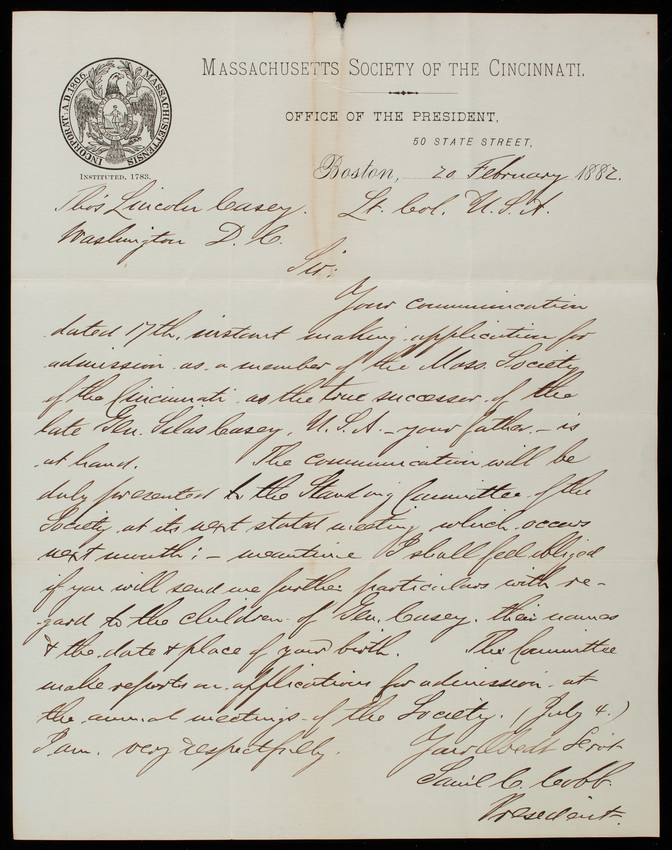 MASSACHUSETTS SOCIETY OF THE CINCINNATI.
OFFICE OF THE PRESIDENT,
50 STATE STREET,
INCORPORAT. A.D. 1806. MASSACHUSETTENSIS
INSTITUTED, 1783.
Boston, 20 February 1882.
Thos Lincoln Casey. Lt. Col. U.S.A.
Washington D.C.
Sir:
Your communication
dated 17th. instant making application for
admission as a member of the Mass. Society
of the Cincinnati as the true successor of the
late Gen. Silas Casey, U.S.A. – your father – is
at hand. The communication will be
duly presented to the Standing Committee of the
Society at its next stated meeting which occurs
next month: – meantime I shall feel obliged
if you will send me further particulars with re-
gard to the children of Gen. Casey. their names
& the date & place of your birth. The Committee
make reports on applications for admission at
the annual meetings of the Society. (July 4.)
I am. very respectfully. Your Obedt Servt
Saml C. Cobb.
President.